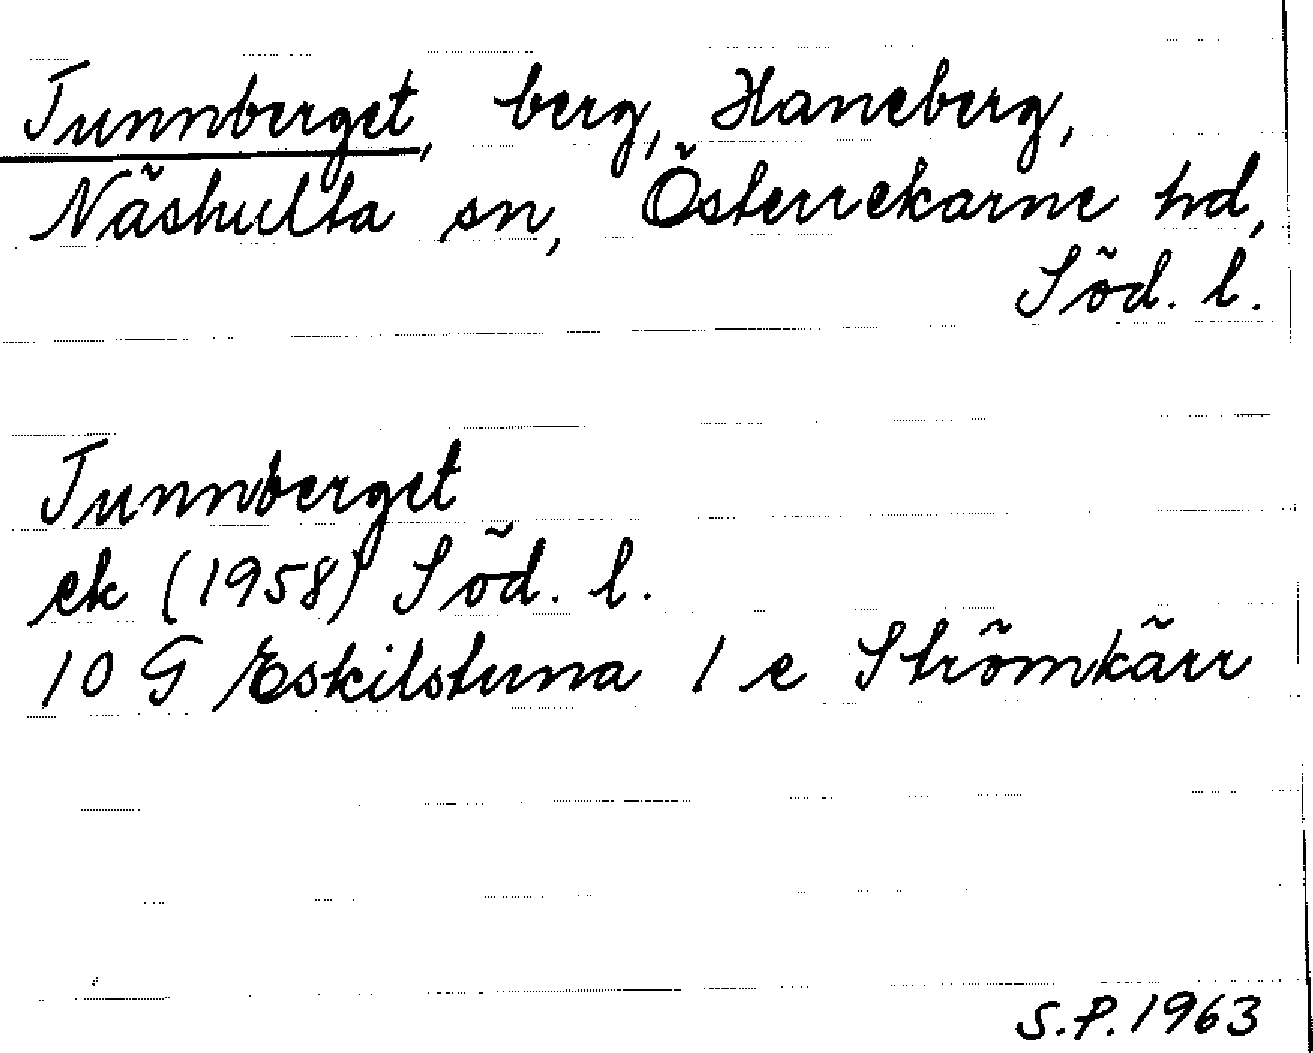 Tunnberget, berg, Haneberg,
Näshulta sn, Österrekarne hd,
Söd. l.
Tunnberget
ek (1958) Söd. l.
10 G Eskilstuna 1 e Strömkärr
S.P. 1963